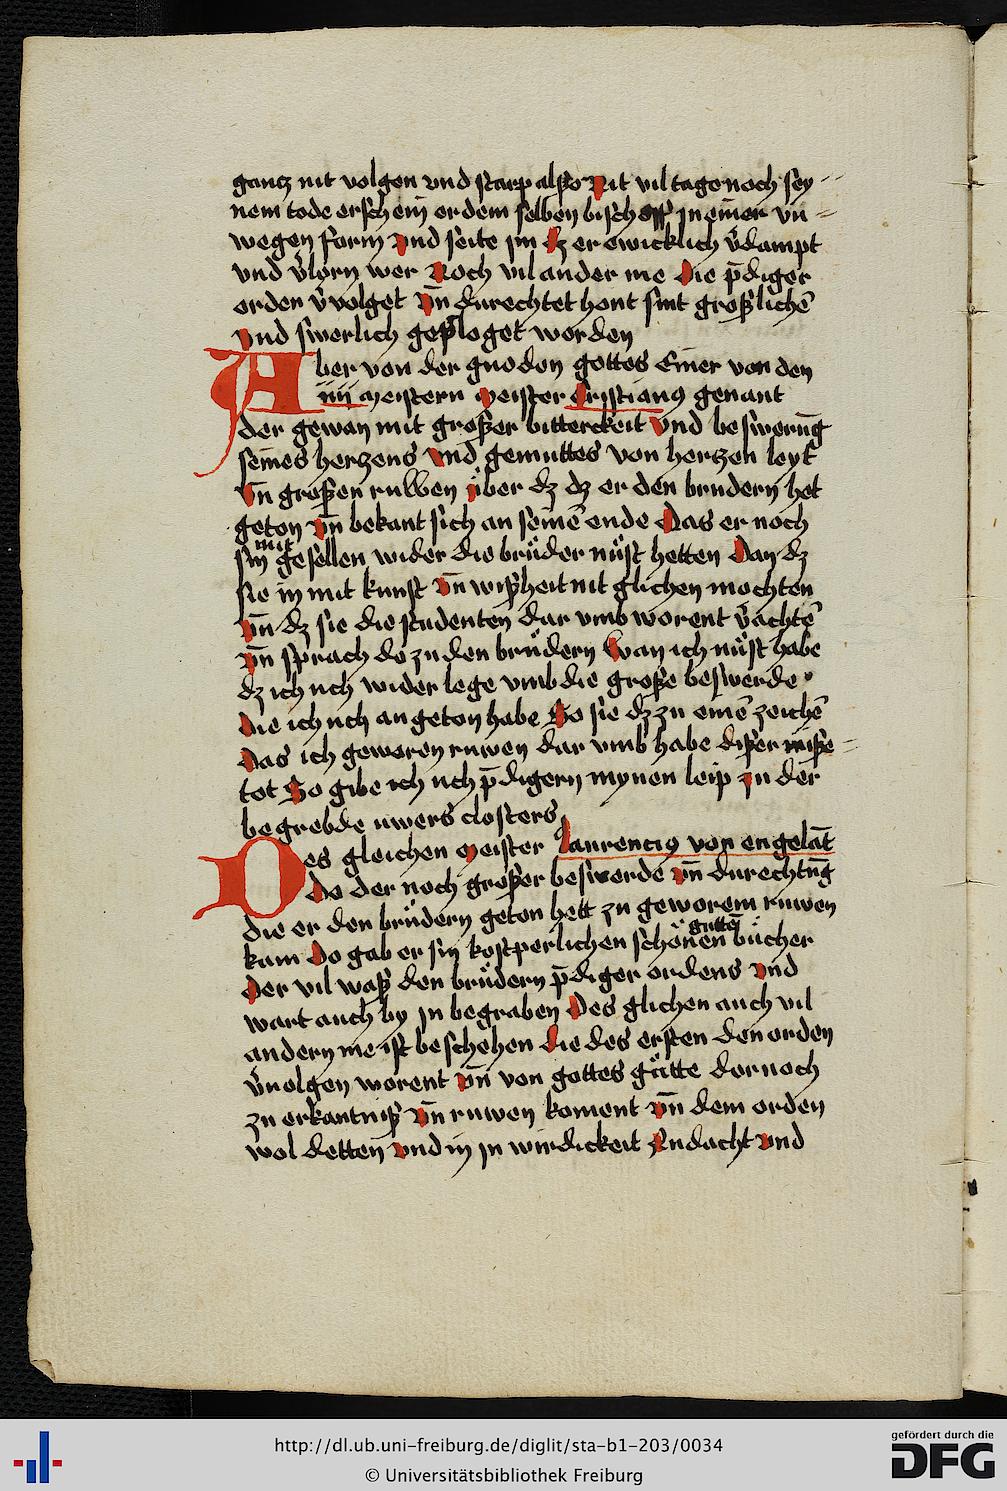 gantz nit volgen vnd starp also Nit vil tage noch sey
nem tode erschein er dem selben bischoff jn einer vn
wegen form vnd seite jm dz er ewicklich v̄dampt
vnd v̄lorn wer Noch vil ander me die p̄diger
orden v̄volget vn̄ durechtet hont sint großlichē
vnd swerlich geploget worden
Aber von der gnoden gottes Einer von den
iiij meistern meister Cristianus genant
der gewan mit großer bitterckeit vnd besweru̅g
seines hertzens vnd gemuttes von hertzen leyt
vn̄ großen ruwen über dz dz er den brudern het
geton vn̄ bekant sich an seinē ende Das er noch
mit
sin gesellen wider die brüder nüst hetten Dan dz
sie in mit kunst vn̄ wißheit nit glichen mochten
vn̄ dz sie die studenten dar vmb worent v̄achtē
vn̄ sprach do zu den brüdern Wan ich nüst habe
dz ich uch wider lege vmb die große beswerde
die ich uch an geton habe So sie dz zu einē zeichē
Das ich geworen ruwen dar vmb habe dißer miße
tot So gibe ich uch p̄digern mynen leip zu der
begrebde uwers closters
Des gleichen meister laurencius von engelāt
do der noch großer beswerde vn̄ durechtu̅g
die er den brüdern geton hett zu geworem ruwen
guttē
kam Do gab er sin kostperlichen schönen bücher
Der vil waß den brüdern p̄diger ordens vnd
wart auch by jn begraben Des glichen auch vil
andern me ist beschehen die des ersten den orden
v̄uolgen worent vn̄ von gottes gütte dornoch
zu erkantniß vn̄ ruwen koment vn̄ dem orden
wol detten vnd in jn wirdickeit Andacht vnd
http://dl.ub.uni-freiburg.de/diglit/sta-b1-203/0034
© Universitätsbibliothek Freiburg
gefördert durch die
DFG